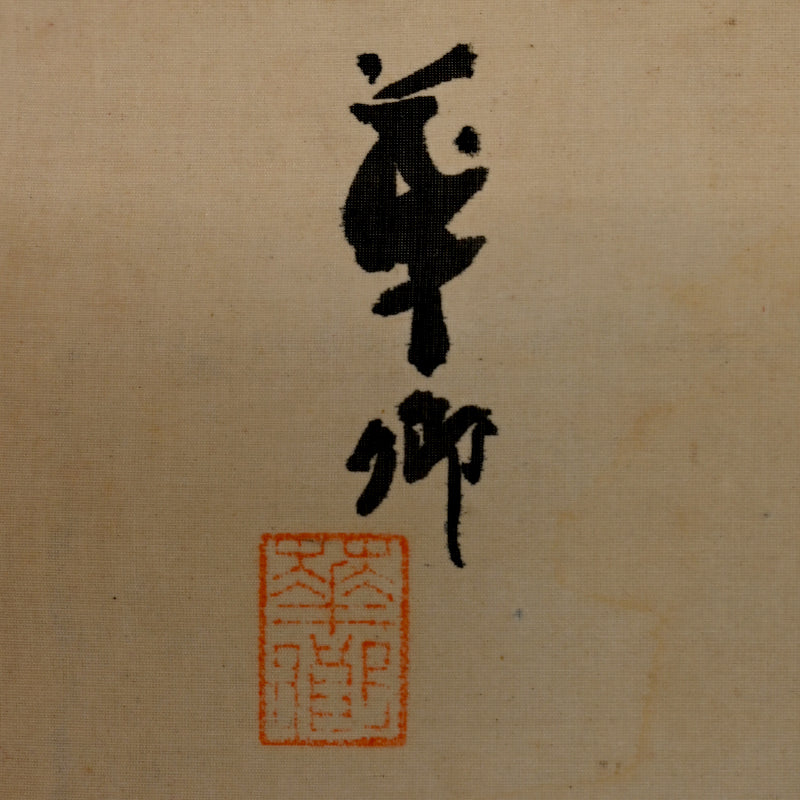 華卿
華卿